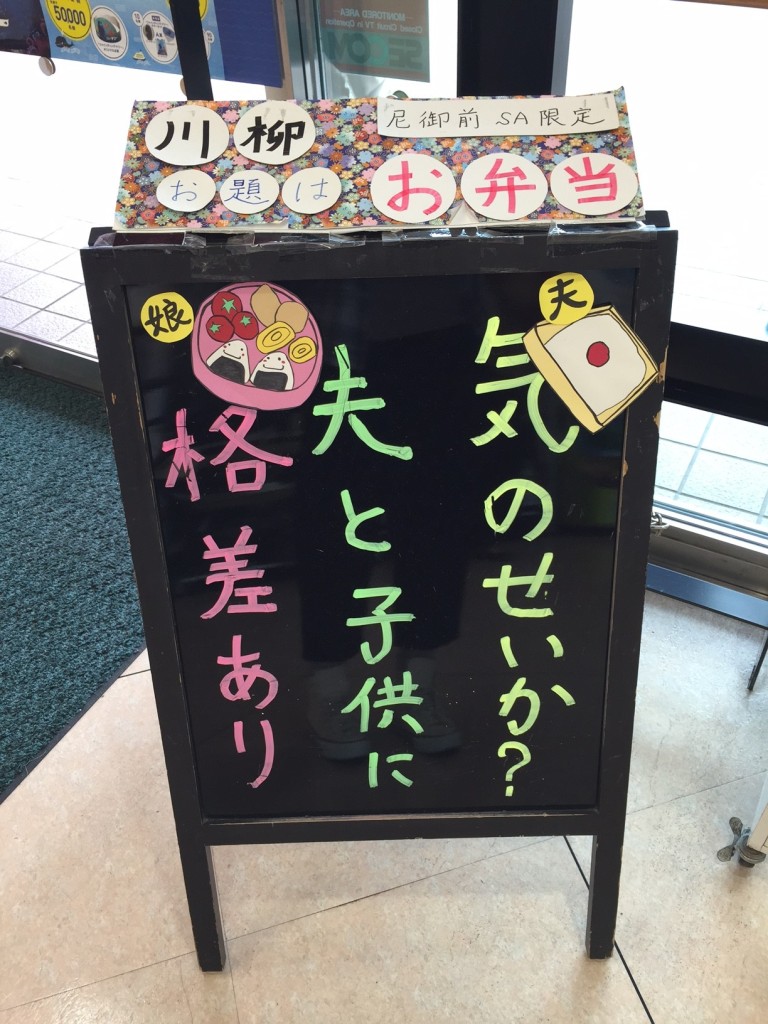 50,000
MONITORED AREA
Closed Circuit TV in Operation
SECOM
川柳
尼御前 SA限定
お題は
お弁当
夫
気のせいか?
夫と子供に
娘
格差あり